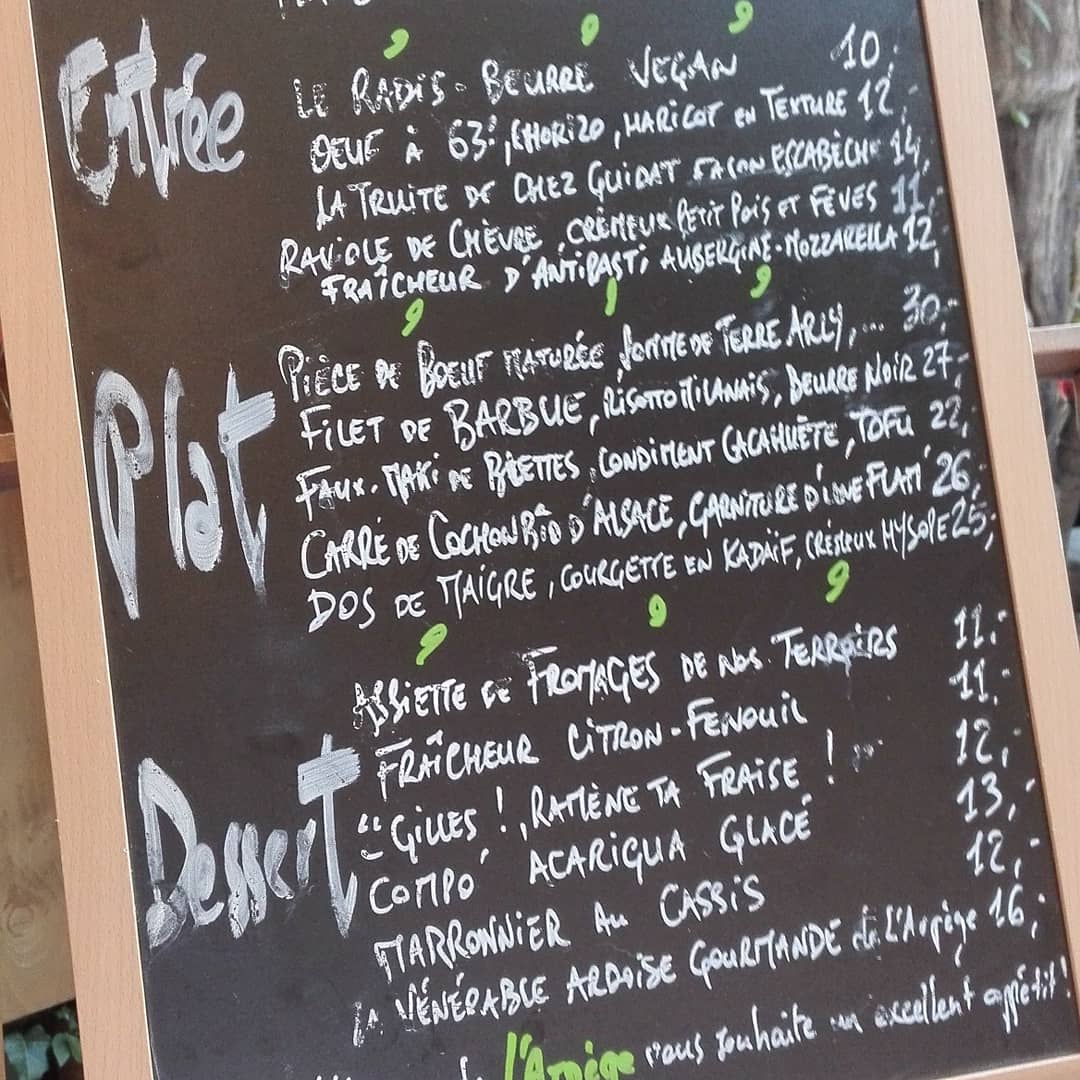 Entrée
LE RADIS-BEURRE VEGAN 10,-
OEUF À 63°, CHORIZO, HARICOT EN TEXTURE 12,-
LA TRUITE DE CHEZ GUIDAT FAÇON ESCABÈCHE 14,-
RAVIOLE DE CHÈVRE, CRÉMEUX PETIT POIS ET FÈVES 11,-
FRAÎCHEUR D'ANTIPASTI AUBERGINE-MOZZARELLA 12,-
Plat
PIÈCE DE BOEUF MATURÉE, POMME DE TERRE ARLY,... 30,-
FILET DE BARBUE, RISOTTO MILANAIS, BEURRE NOIR 27,-
FAUX-MAKI DE BLETTES, CONDIMENT CACAHUÈTE, TOFU 22,-
CARRÉ DE COCHON BIO D'ALSACE, GARNITURE D'UNE FLAM' 26,-
DOS DE MAIGRE, COURGETTE EN KADAÏF, CRÉMEUX HYSOPE 25,-
Dessert
ASSIETTE DE FROMAGES DE NOS TERROIRS 11,-
FRAÎCHEUR CITRON-FENOUIL 11,-
"GILLES!, RAMÈNE TA FRAISE!" 12,-
COMPO' ACARIGUA GLACÉ 13,-
MARRONNIER AU CASSIS 12,-
LA VÉNÉRABLE ARDOISE GOURMANDE de L'Arpège 16,-
l'Arpège vous souhaite un excellent appétit!